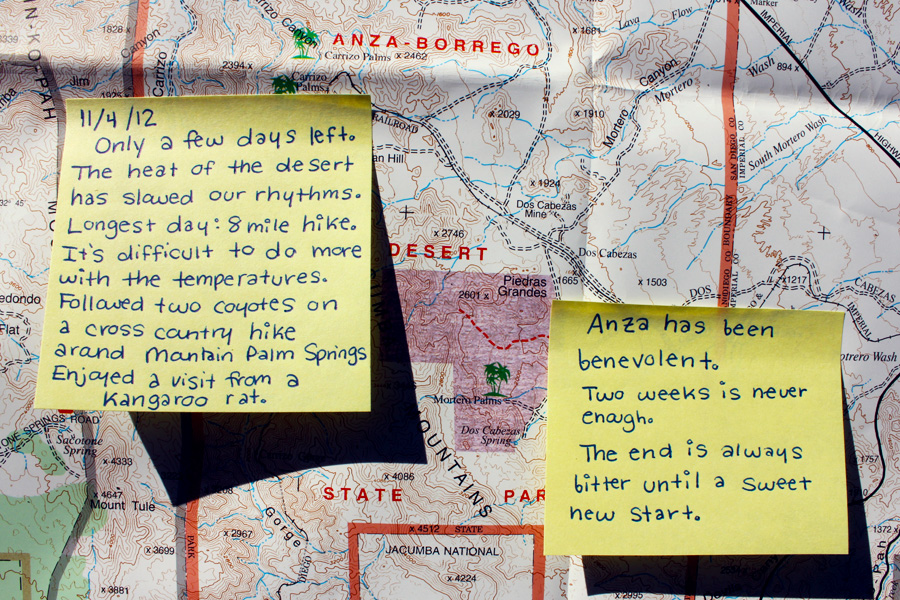 11/4/12
Only a few days left.
The heat of the desert
has slawed our rhythms.
Longest day: 8 mile hike.
It's difficult to do more
with the temperatures.
Followed two coyotes on
a cross cantry hike
arand Mantain Palm Springs
Enjoyed a visit from a
Kangaroo rat.
Anza has been
benevolent.
Two weeks is never
enagh.
The end is always
bitter until a sweet
new start.
ANZA-BORREGO
Carrizo Canyon
Carrizo Palms
x 2462
1828 x
2394 x
Jim
Carrizo
Canyon
Carrizo
Palms
RAILROAD
x 2029
x 1681
x 1910
x 1924
Lava Flow
Marker
IMPERIAL
Wash
894 x
Mortero
Canyon
Mortero
South Mortero Wash
HIGHWAY
SAN DIEGO CO
IMPERIAL CO
BOUNDARY
Dos Cabezas
Mine
x 2746
DESERT
Dos Cabezas
1665
x 1503
DOS
CABEZAS
x1217
IMPERIAL
Piedras
Grandes
2601 x
Mortero Palms
Dos Cabezas
Spring
MOUNTAINS
STATE
PAR
x 4086
SPRINGS ROAD
Sacatone
Spring
x 4333
x 4647
Mount Tule
x 3699
x 3881
x 2967
PARK
Gorge
x 4512
STATE
JACUMBA NATIONAL
x 4224
x 2995
1757
1372 x